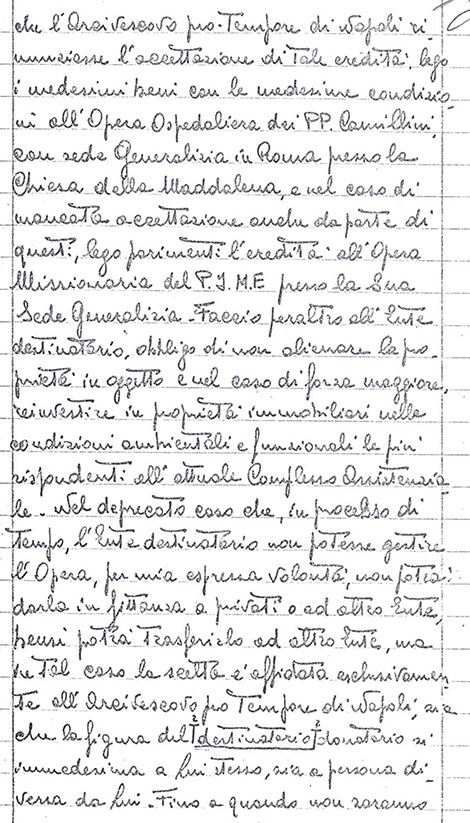 che l'Arcivescovo pro-Tempore di Napoli ri-
nunziesse l'accettazione di tale eredità, lego
i medesimi beni con le medesime condizio-
ni all'Opera Ospedaliera dei PP. Camillini,
con sede Generalizia in Roma presso la
Chiesa della Maddalena, e nel caso di
mancata accettazione anche da parte di
questi, lego parimenti l'eredità all'Opera
Missionaria del P.I.M.E presso la Sua
Sede Generalizia. Faccio peraltro all'Ente
destinatario, obbligo di non alienare la pro-
prietà in oggetto e nel caso di forza maggiore,
reinvestire in proprietà immobiliari nelle
condizioni ambientali e funzionali le più
rispondenti all'attuale Complesso Assistenzia-
le. Nel deprecato caso che, in processo di
tempo, l'Ente destinatario non potesse gestire
l'Opera, per mia espressa volontà, non potrà
darla in fittanza a privati o ad altro Ente,
bensì potrà trasferirlo ad altro Ente, ma
in tal caso la scelta è affidata esclusivamen-
te all'Arcivescovo pro Tempore di Napoli, sia
che la figura del 2 destinatario 2 donatario si
immedesima a Lui stesso, sia a persona di-
versa da Lui. Fino a quando non saranno